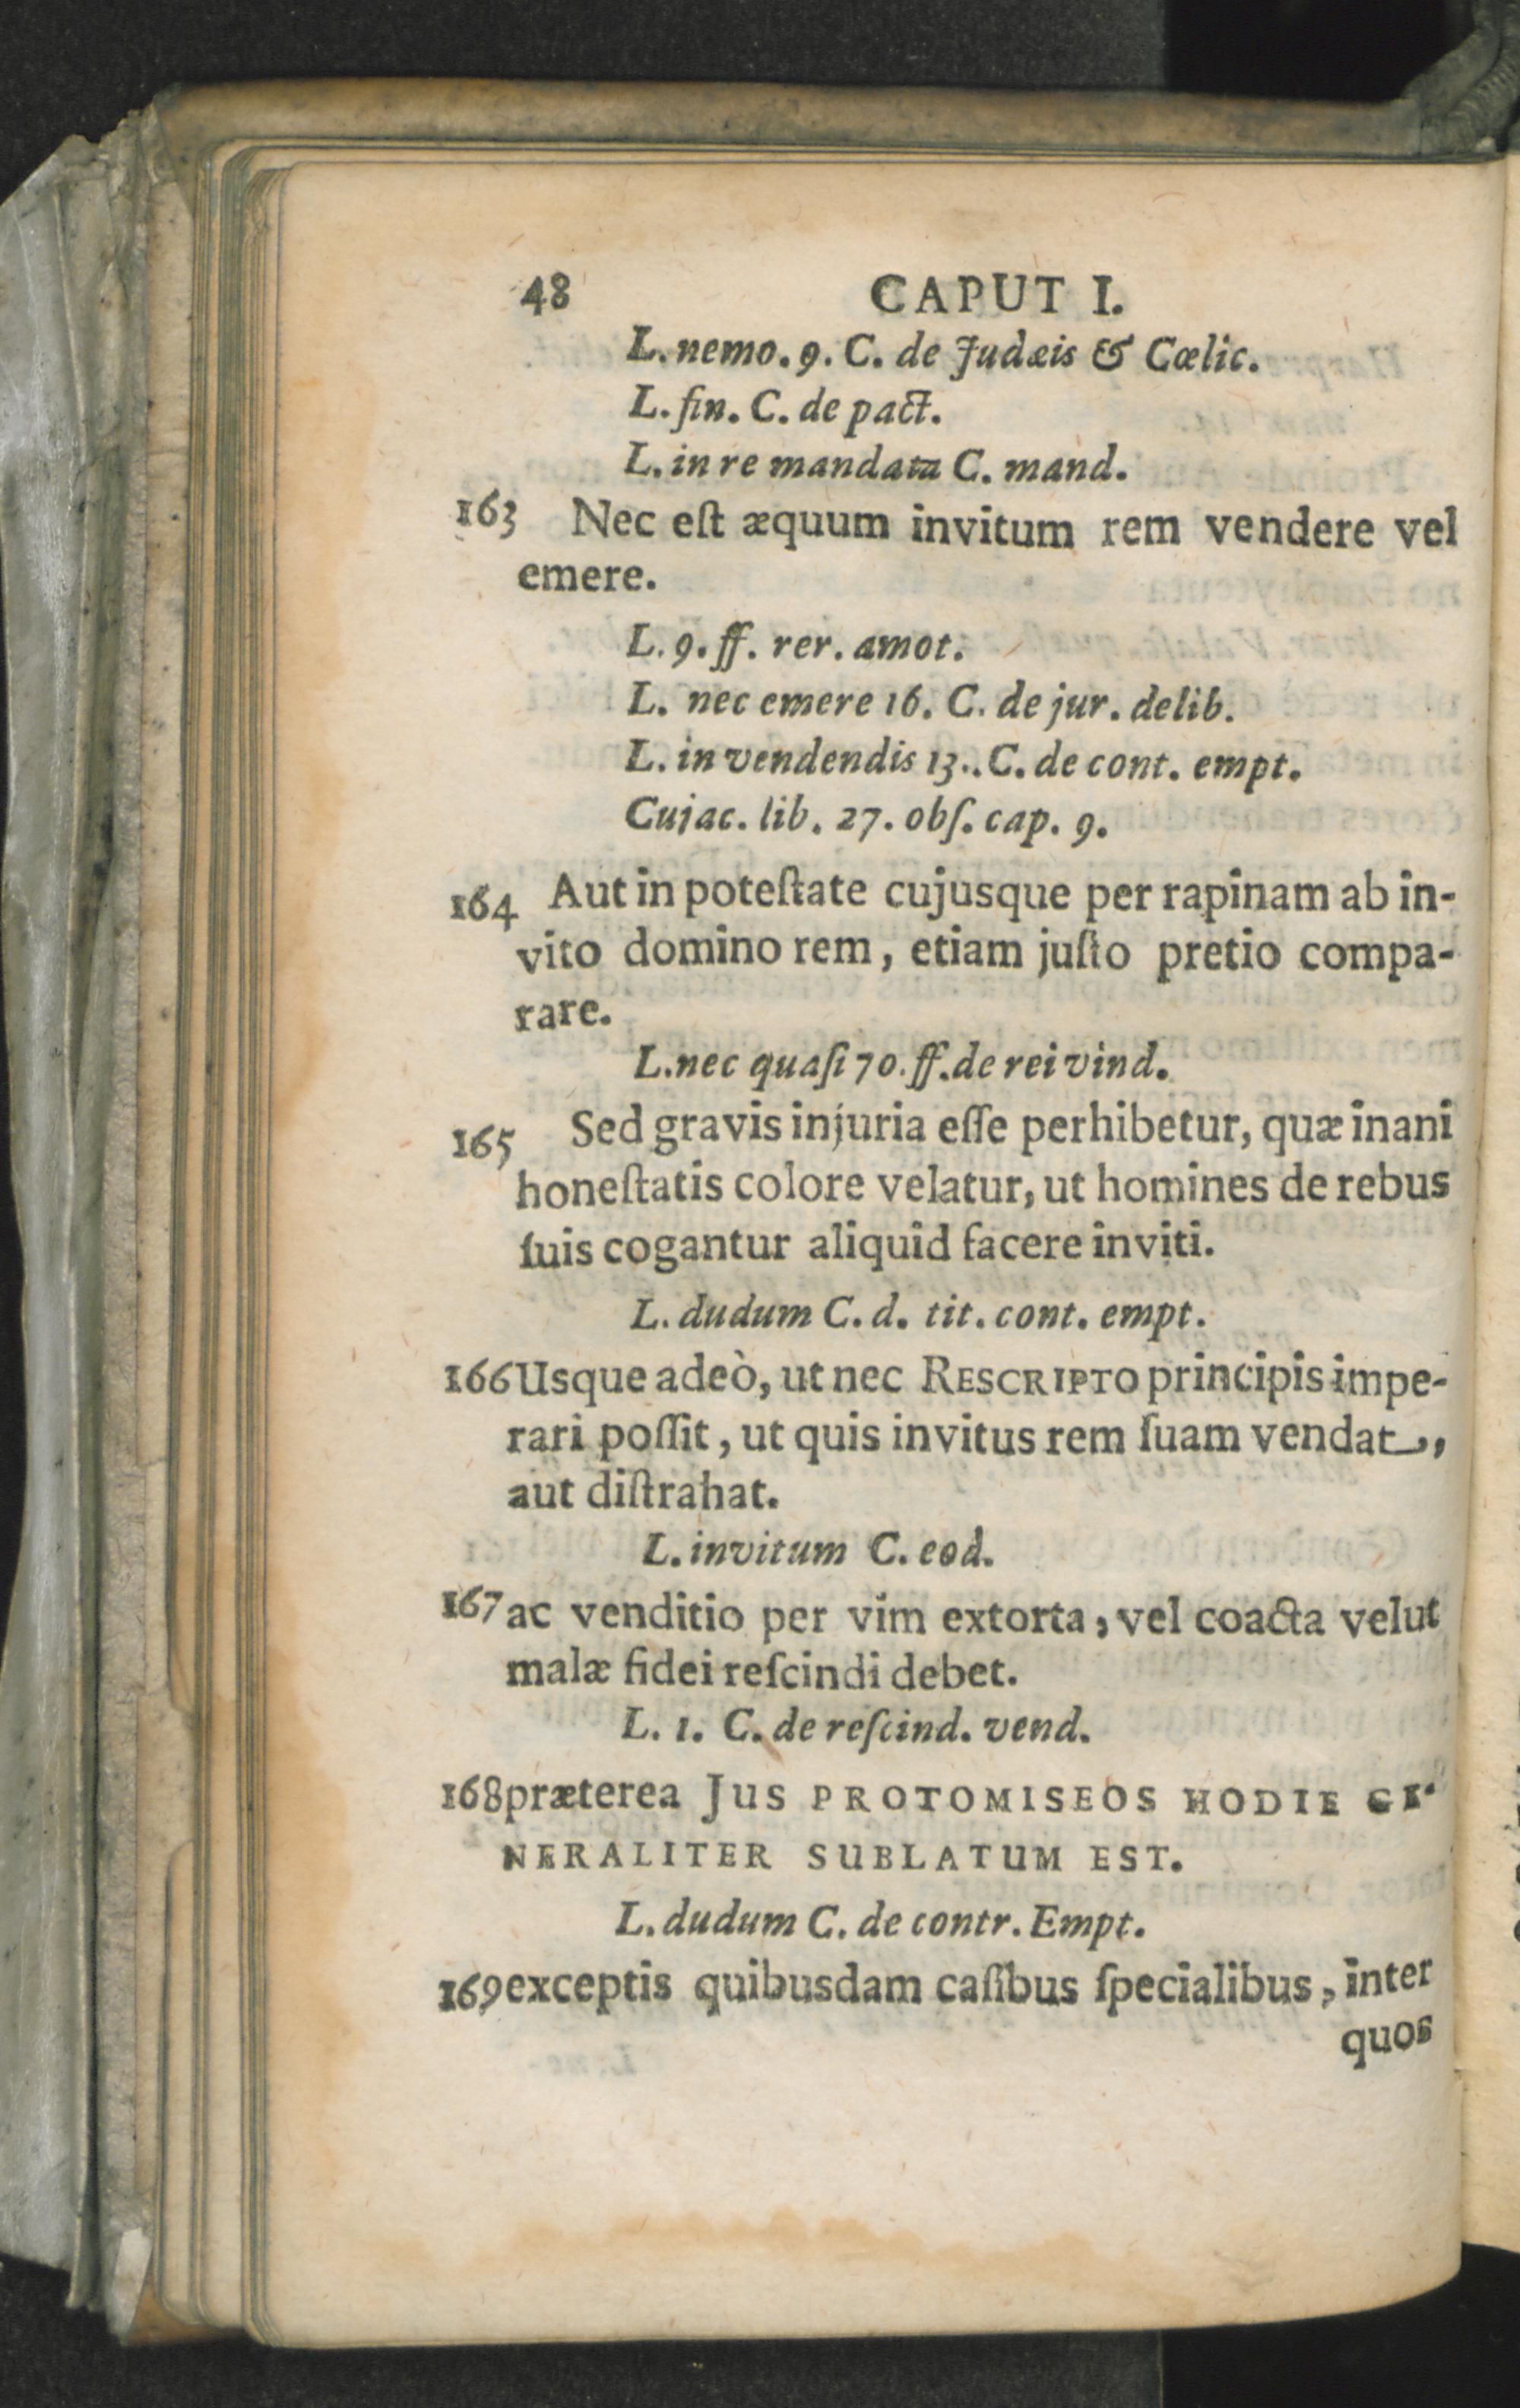 48 CAPUT I.
L. nemo. 9. C. de Judæis & Cœlic.
L. fin. C. de pact.
L. in re mandata C. mand.
163 Nec eſt æquum invitum rem vendere vel
emere.
L. 9. ff. rer. amot.
L. nec emere 16. C. de jur. delib.
L. in vendendis 13.. C. de cont. empt.
Cujac. lib. 27. obſ. cap. 9.
164 Aut in poteſtate cujusque per rapinam ab in-
vito domino rem, etiam juſto pretio compa-
rare.
L. nec quaſi 70. ff. de rei vind.
165 Sed gravis injuria eſſe perhibetur, quæ inani
honeſtatis colore velatur, ut homines de rebus
ſuis cogantur aliquid facere inviti.
L. dudum C. d. tit. cont. empt.
166 Usque adeò, ut nec RESCRIPTO principis impe-
rari poſſit, ut quis invitus rem ſuam vendat,
aut diſtrahat.
L. invitum C. eod.
167 ac venditio per vim extorta, vel coacta velut
malæ fidei reſcindi debet.
L. 1. C. de reſcind. vend.
168 præterea JUS PROTOMISEOS HODIE GE-
NERALITER SUBLATUM EST.
L. dudum C. de contr. Empt.
169 exceptis quibusdam caſibus ſpecialibus, inter
quos